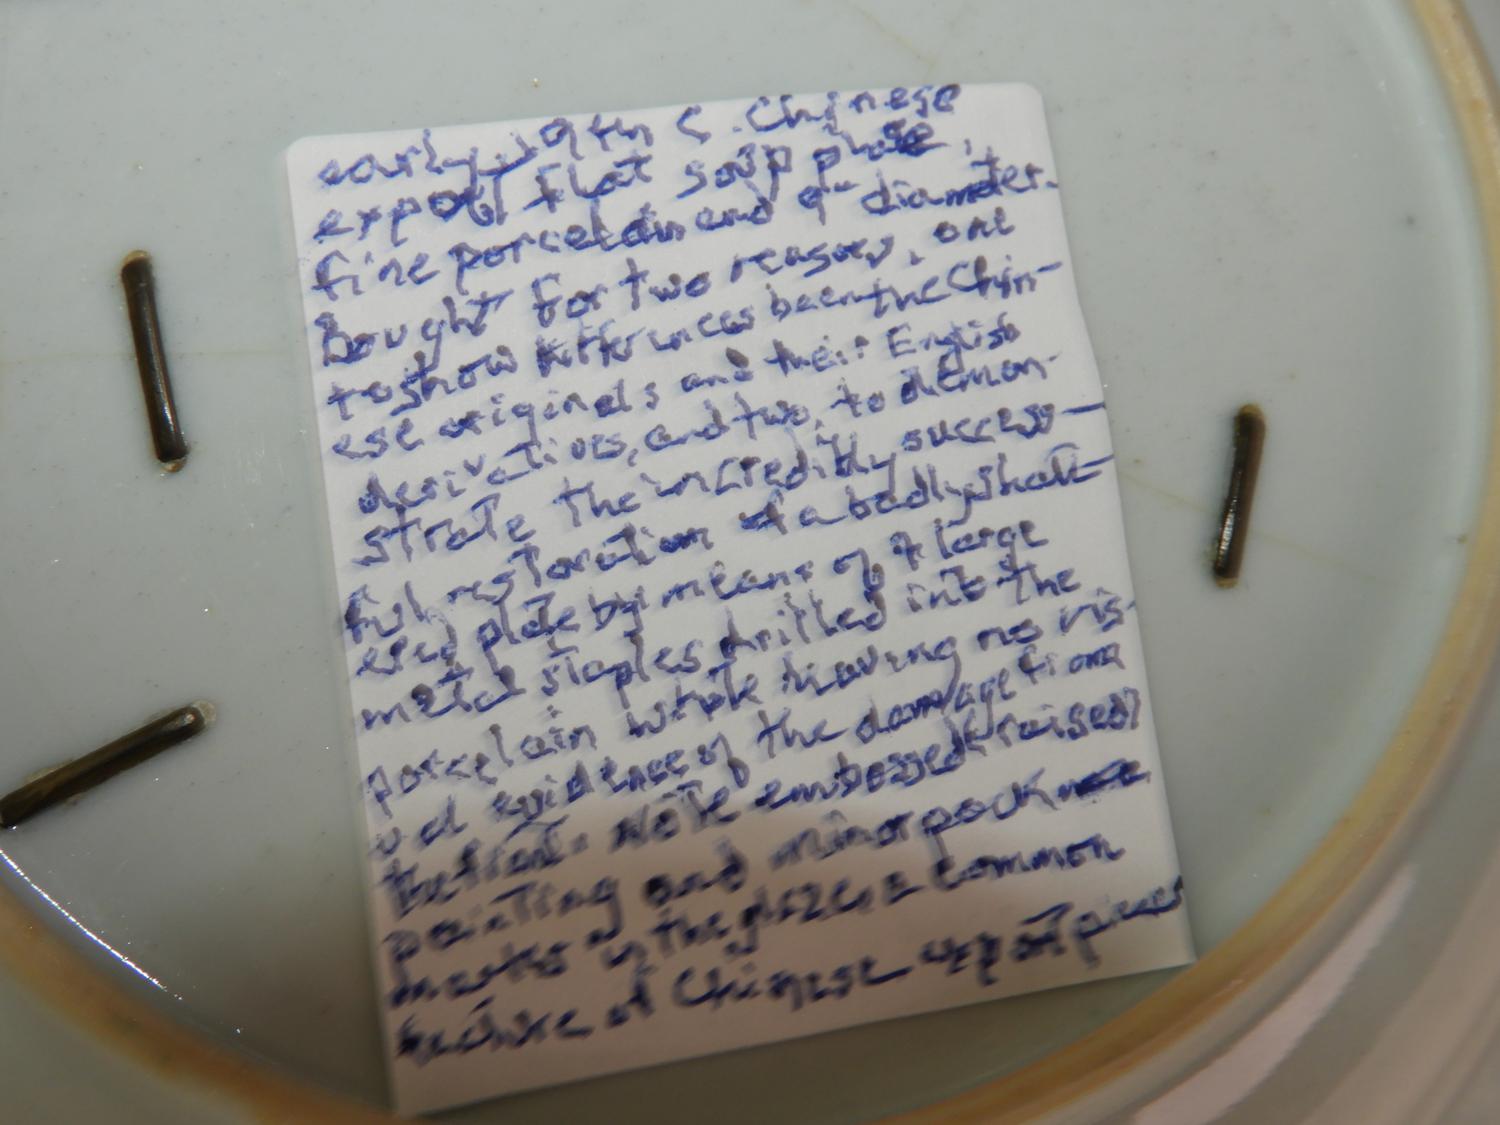 early 19th C. Chinese
export flat soup plate,
fine porcelain and 9" diameter.
Bought for two reasons, one
to show differences been the Chin-
ese originals and their English
derivatives, and two, to demon-
strate the incredibly success-
ful restoration of a badly shatt-
ered plate by means of 7 large
metal staples drilled into the
porcelain while having no vis-
ual evidence of the damage from
the front. Note embossed (raised)
painting and minor pock
marks in the glaze = common
feature of Chinese export pieces